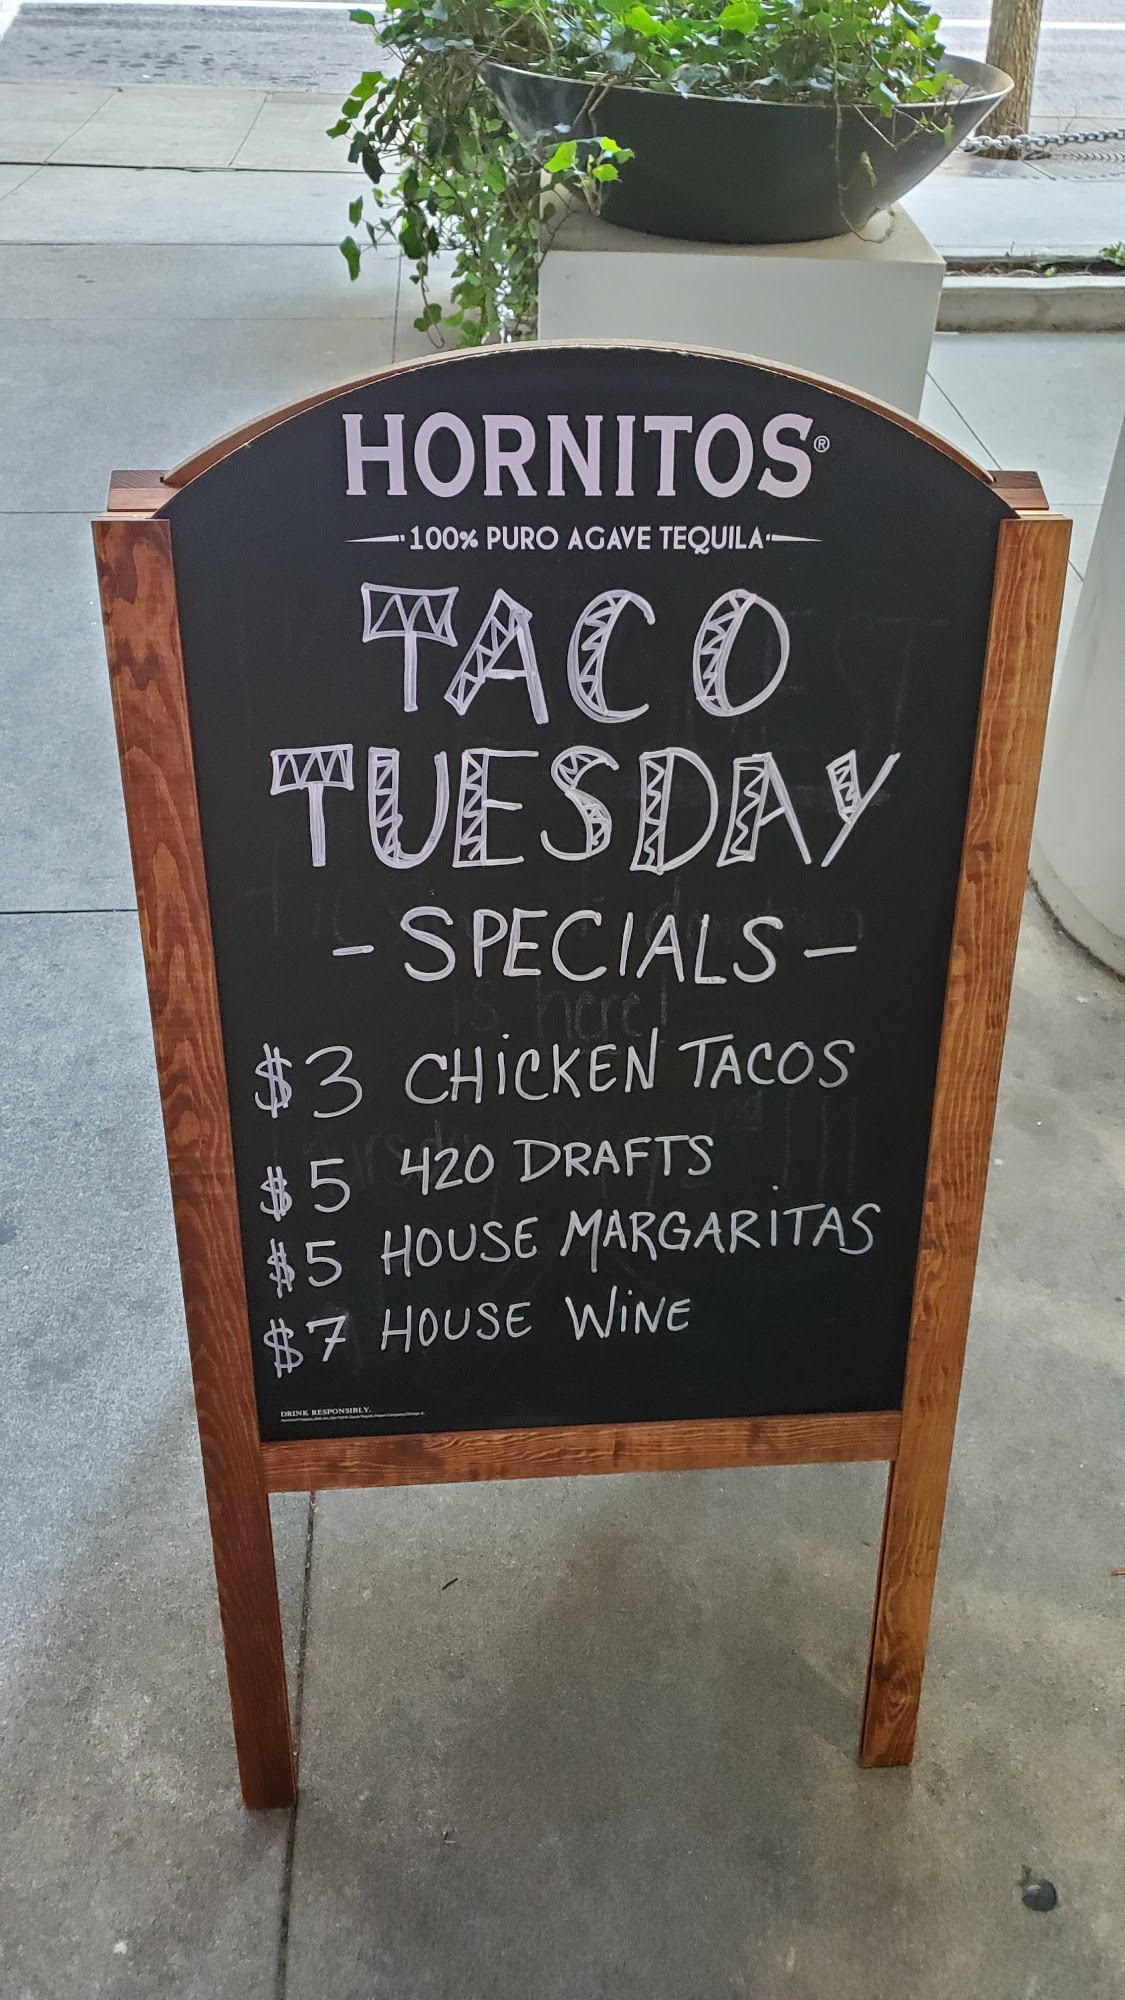 HORNITOS®
100% PURO AGAVE TEQUILA
TACO
TUESDAY
- SPECIALS -
$3 CHICKEN TACOS
$5 420 DRAFTS
$5 HOUSE MARGARITAS
$7 HOUSE WINE
DRINK RESPONSIBLY.